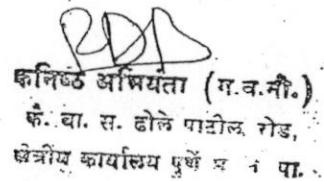 कनिष्ठ अभियंता (ग.व.नी.)
कै. बा. स. ढोले पाटील रोड,
क्षेत्रीय कार्यालय पुणे म न पा.